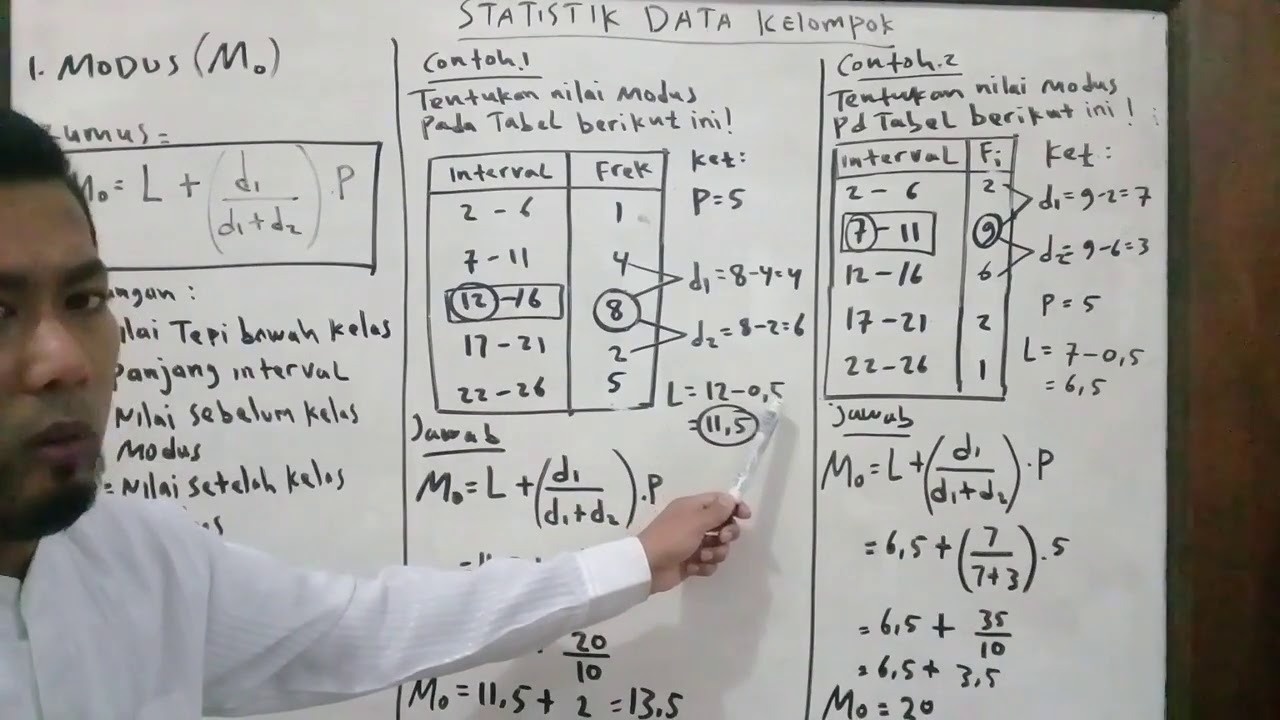 STATISTIK DATA Kelompok
1. MODUS (Mo)
umus =
Mo = L + (d1 / d1 + d2) . P
ngan :
ilai Tepi bawah kelas
Panjang interval
Nilai sebelum kelas
Modus
= Nilai setelah kelas
Contoh.1
Tentukan nilai Modus
pada Tabel berikut ini!
Interval Frek
2 - 6 1
7 - 11 4
12 - 16 8
17 - 21 2
22 - 26 5
ket:
P = 5
d1 = 8-4 = 4
d2 = 8-2 = 6
L = 12 - 0,5
= 11,5
Jawab
Mo = L + (d1 / d1 + d2) . P
20 / 10
Mo = 11,5 + 2 = 13,5
Contoh.2
Tentukan nilai Modus
pd Tabel berikut ini !
Interval Fi
2 - 6 2
7 - 11 9
12 - 16 6
17 - 21 2
22 - 26 1
ket :
d1 = 9-2 = 7
d2 = 9-6 = 3
P = 5
L = 7 - 0,5
= 6,5
Jawab
Mo = L + (d1 / d1 + d2) . P
= 6,5 + (7 / 7+3) . 5
= 6,5 + 35 / 10
= 6,5 + 3,5
Mo = 20